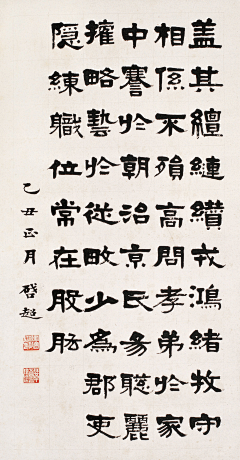 盖其繵縺纘戎鴻緒牧守
相係不殞高問孝弟於家
中謇於朝治京氏易聰麗
權略藝於從畋少為郡吏
隱練職位常在股肱
己丑正月啓超